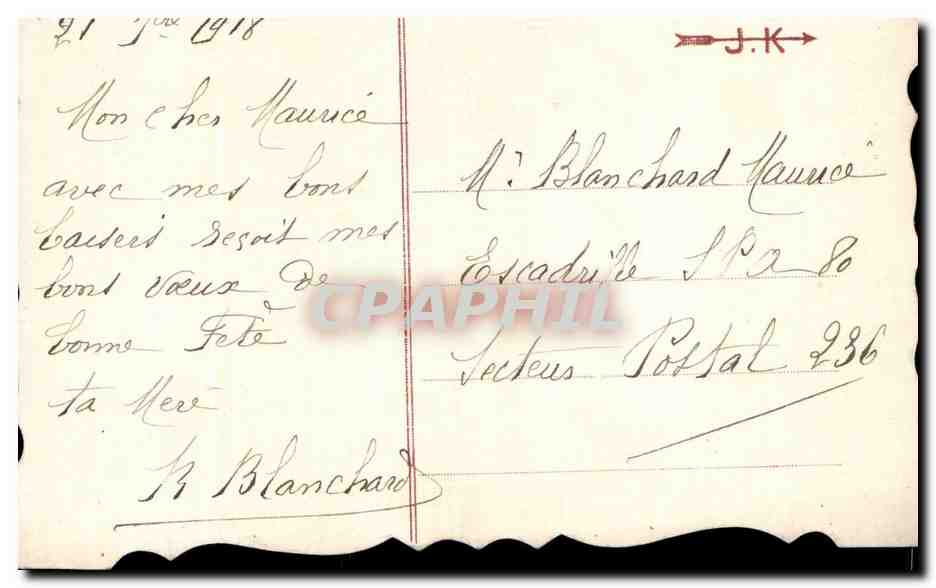 21 7bre 1918
Mon cher Maurice
avec mes bons
baisers reçoit mes
bons vœux de
bonne Fète
ta Mere
R Blanchard
J.K
Mr Blanchard Maurice
Escadrille SPA 80
Secteur Postal 236
CPAPHIL